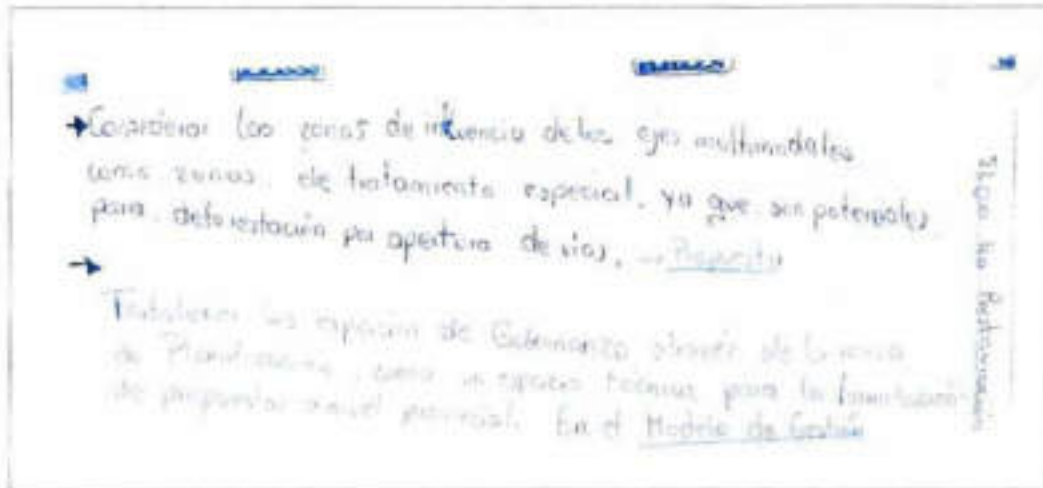 Considerar las zonas de influencia de los ejes multimodales
como zonas de tratamiento especial, ya que son potenciales
para deforestación por apertura de vías. → Proyecto
Fortalecer los espacios de Gobernanza através de la mesa
de Planificación, como un espacio técnico para la formulación
de propuestas a nivel provincial. En el Modelo de Gestión
Restauración